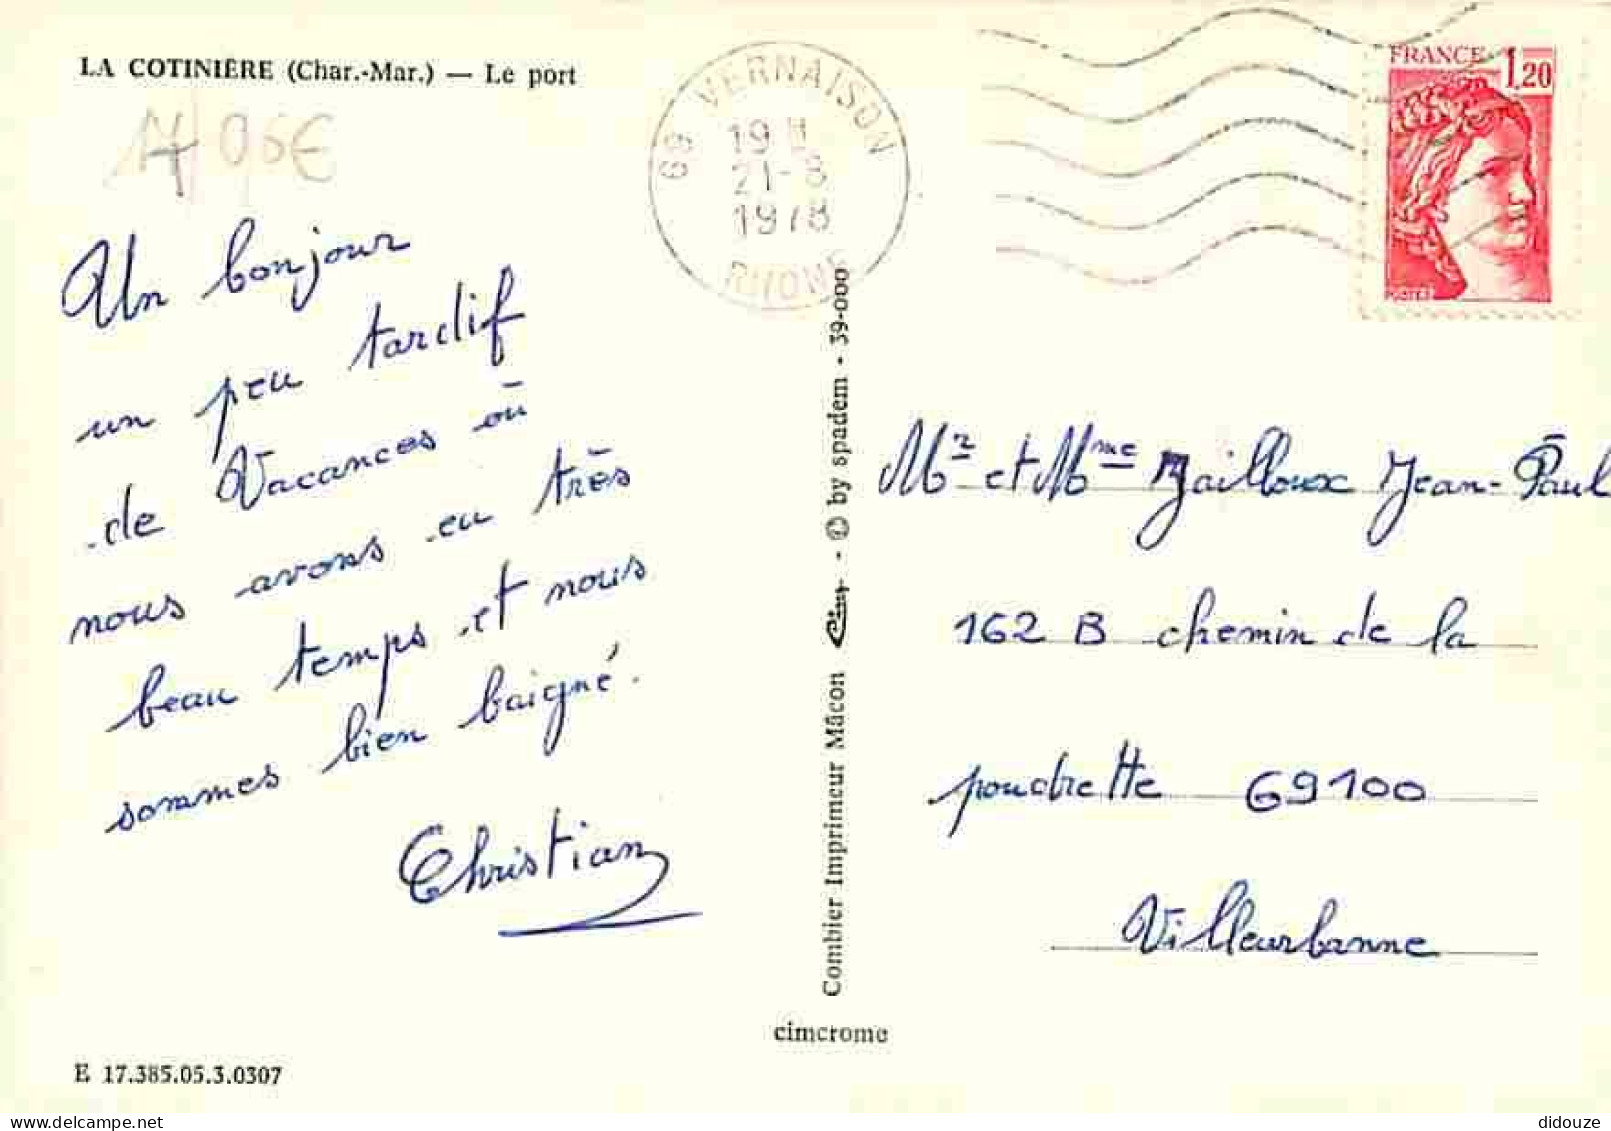 LA COTINIÈRE (Char.-Mar.) — Le port
17/ 0,5€
69 VERNAISON
19 H
21-8
1978
RHONE
FRANCE 1,20
Un bonjour
un peu tardif
de Vacances où
nous avons eu très
beau temps et nous
sommes bien baigné.
Christian
Combier Imprimeur Mâcon Cim - © by spadem - 39-000
Mr et Mme Jailloux Jean-Paul
162 B chemin de la
poudrette 69100
Villeurbanne
cimcrome
E 17.385.05.3.0307
didouze